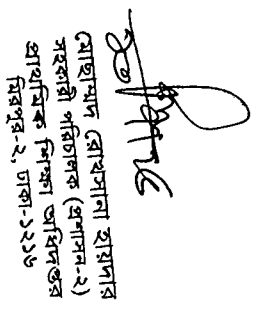 মোছাম্মৎ রোখসানা হায়দার
সহকারী পরিচালক (প্রশাসন-২)
প্রাথমিক শিক্ষা অধিদপ্তর
মিরপুর-২, ঢাকা-১২১৬